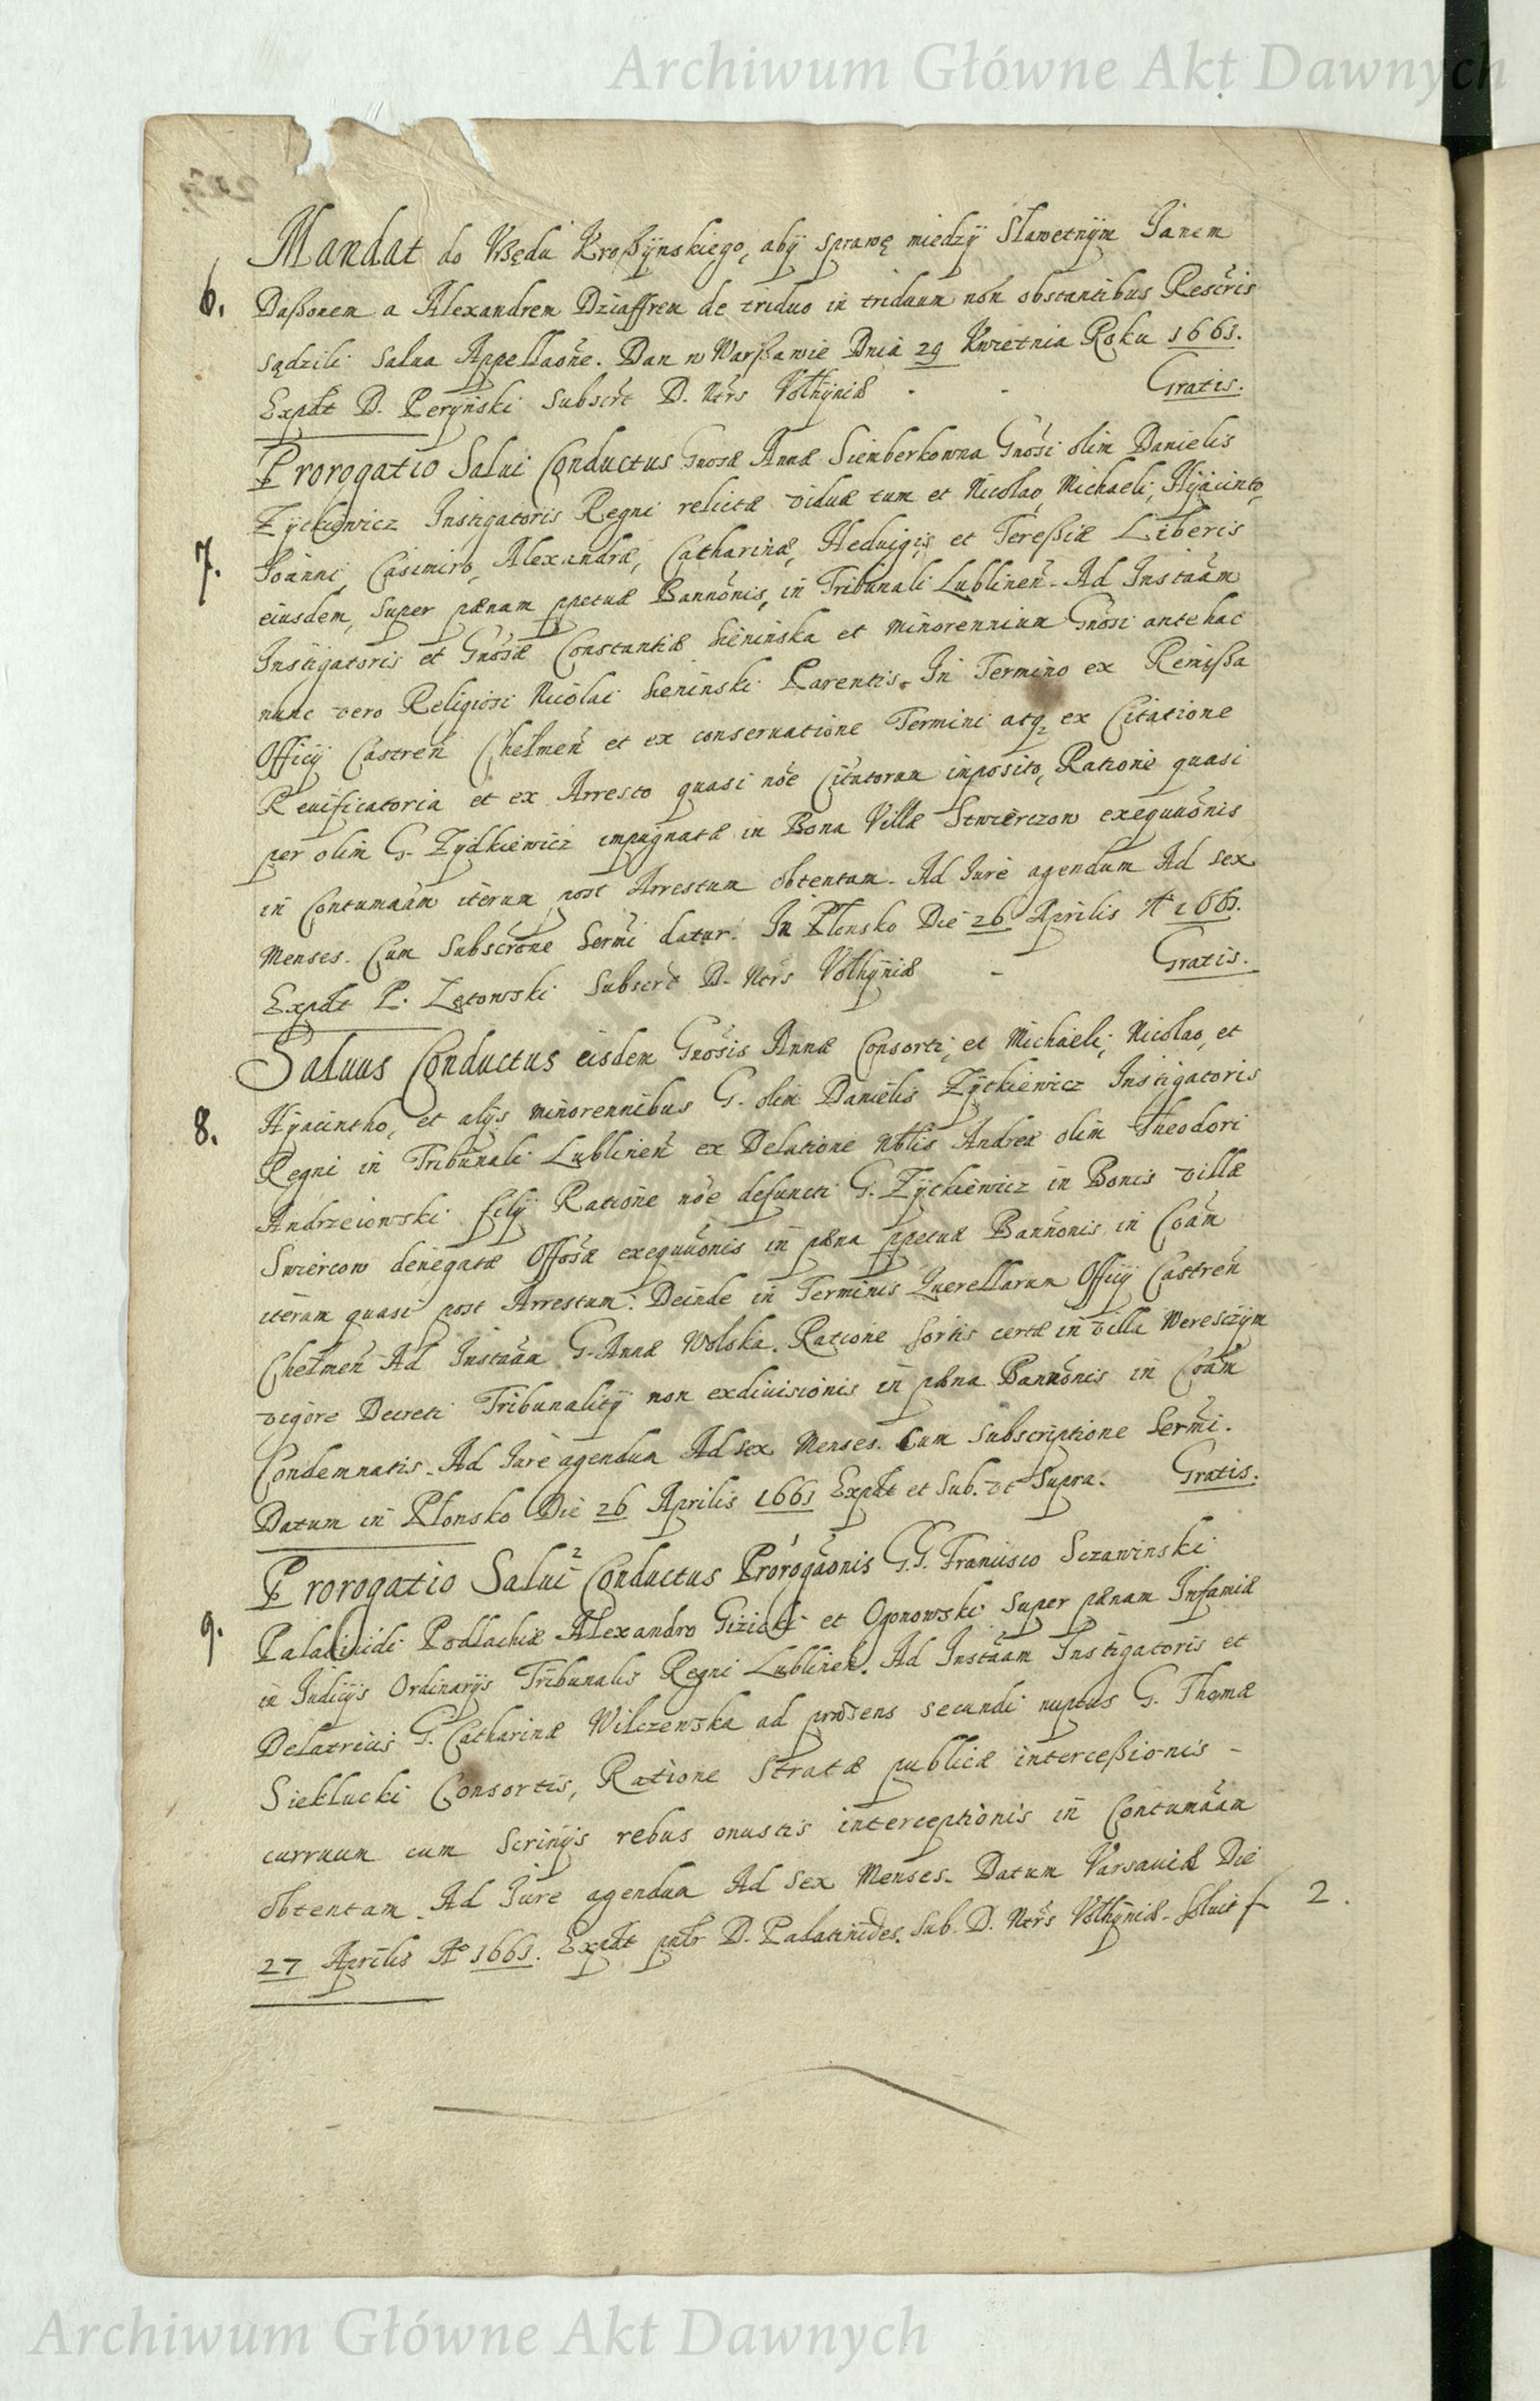 Archiwum Główne Akt Dawnych
Mandat do Vrzędu Kroßÿnskiego, abÿ sprawę miedzÿ Sławetnÿm Janem
6. Daßonem a Alexandrem Dziaffrem de triduo in triduum non obstantibus Rescris
sądzili salua Appellaõne. Dan w Warßawie Dnia 29 Kwietnia Roku 1661.
Expdt D. Perÿnski Subscrt D. Ntrs Volhÿniæ - - Gratis.
Prorogatio Salui Conductus Gnosæ Annæ Sienberkowna Gnosi olim Danielis
Zÿtkiewicz Instigatoris Regni relictæ viduæ tum et Nicolao, Michaeli, Hÿacinto,
7. Joanni, Casimiro, Alexandræ, Catharinæ, Heduigis, et Tereßiæ Liberis
eiusdem, super pænam ppetuæ Bannõnis, in Tribunali Lublineñ. Ad Instaãm
Instigatoris et Gnosæ Constantiæ Sieninska et minorennium Gnosi antehac
nunc vero Religiosi Nicolai Sieninski Parentis. In Termino ex Remißa
Officij Castreñ Chelmeñ et ex conseruatione Termini atq, ex Citatione
Reuificatoria et ex Arresto quasi nõe Citatorum inposito, Ratione quasi
per olim G. Zÿdkiewicz impugnatæ in Bona Villæ Stwierczow exequuõnis
in Contumaãm iterum post Arrestum obtentam. Ad Jure agendum Ad sex
Menses. Cum Subscrõne Sermi datur. In Płonsko Die 26 Aprilis Aº 1661.
Expdt P. Zętowski Subscrt D. Ntrs Volhÿniæ - Gratis.
Saluus Conductus eisdem Gnosis Annæ Consorti, et Michaeli, Nicolao, et
8. Hÿacintho, et alÿs minorennibus G. olim Danielis Zÿtkiewicz Instigatoris
Regni in Tribunali Lublineñ ex Delatione Nblis Andreæ olim Theodori
Andrzeiowski filÿ Ratione nõe defuncti G. Zÿtkiewicz in Bonis villæ
Swiercow denegatæ Offosæ exequuõnis in pæna ppetuæ Bannõnis in Coãm
iterum quasi post Arrestum. Deinde in Terminis Querellarum Officÿ Castreñ
Chelmeñ Ad Instaãm G. Annæ Wolska. Ratione sortis certæ in villa Weresczÿn
vigore Decreti Tribunalitÿ non exdiuisionis in pæna Bannõnis in Coãm
Condemnatis. Ad Jure agendum Ad sex Menses. Cum Subscriptione Sermi.
Datum in Płonsko Die 26 Aprilis 1661 Expdt et Sub. vt Supra. Gratis.
Prorogatio Salui 2 Conductus Prorogaõnis 1 G.G. Francisco Sczawinski
9. Palatinidi Podlachiæ Alexandro Gizicki et Ogonowski super pænam Infamiæ
in Judicÿs Ordinarÿs Tribunalis Regni Lublineñ. Ad Instaãm Instigatoris et
Delatricis G. Catharinæ Wilczewska ad præsens secundi nuptus G. Thomæ
Sieklucki Consortis, Ratione stratæ publicæ interceßionis -
curruum cum scrinÿs rebus onustis interceptionis in Contumaãm
obtentam. Ad Jure agendum Ad sex Menses. Datum Varsauiæ Die
27 Aprilis Aº 1661. Expdt pnlr D. Palatinides. Sub. D. Ntrs Volhÿniæ. Soluit f 2.
Archiwum Główne Akt Dawnych